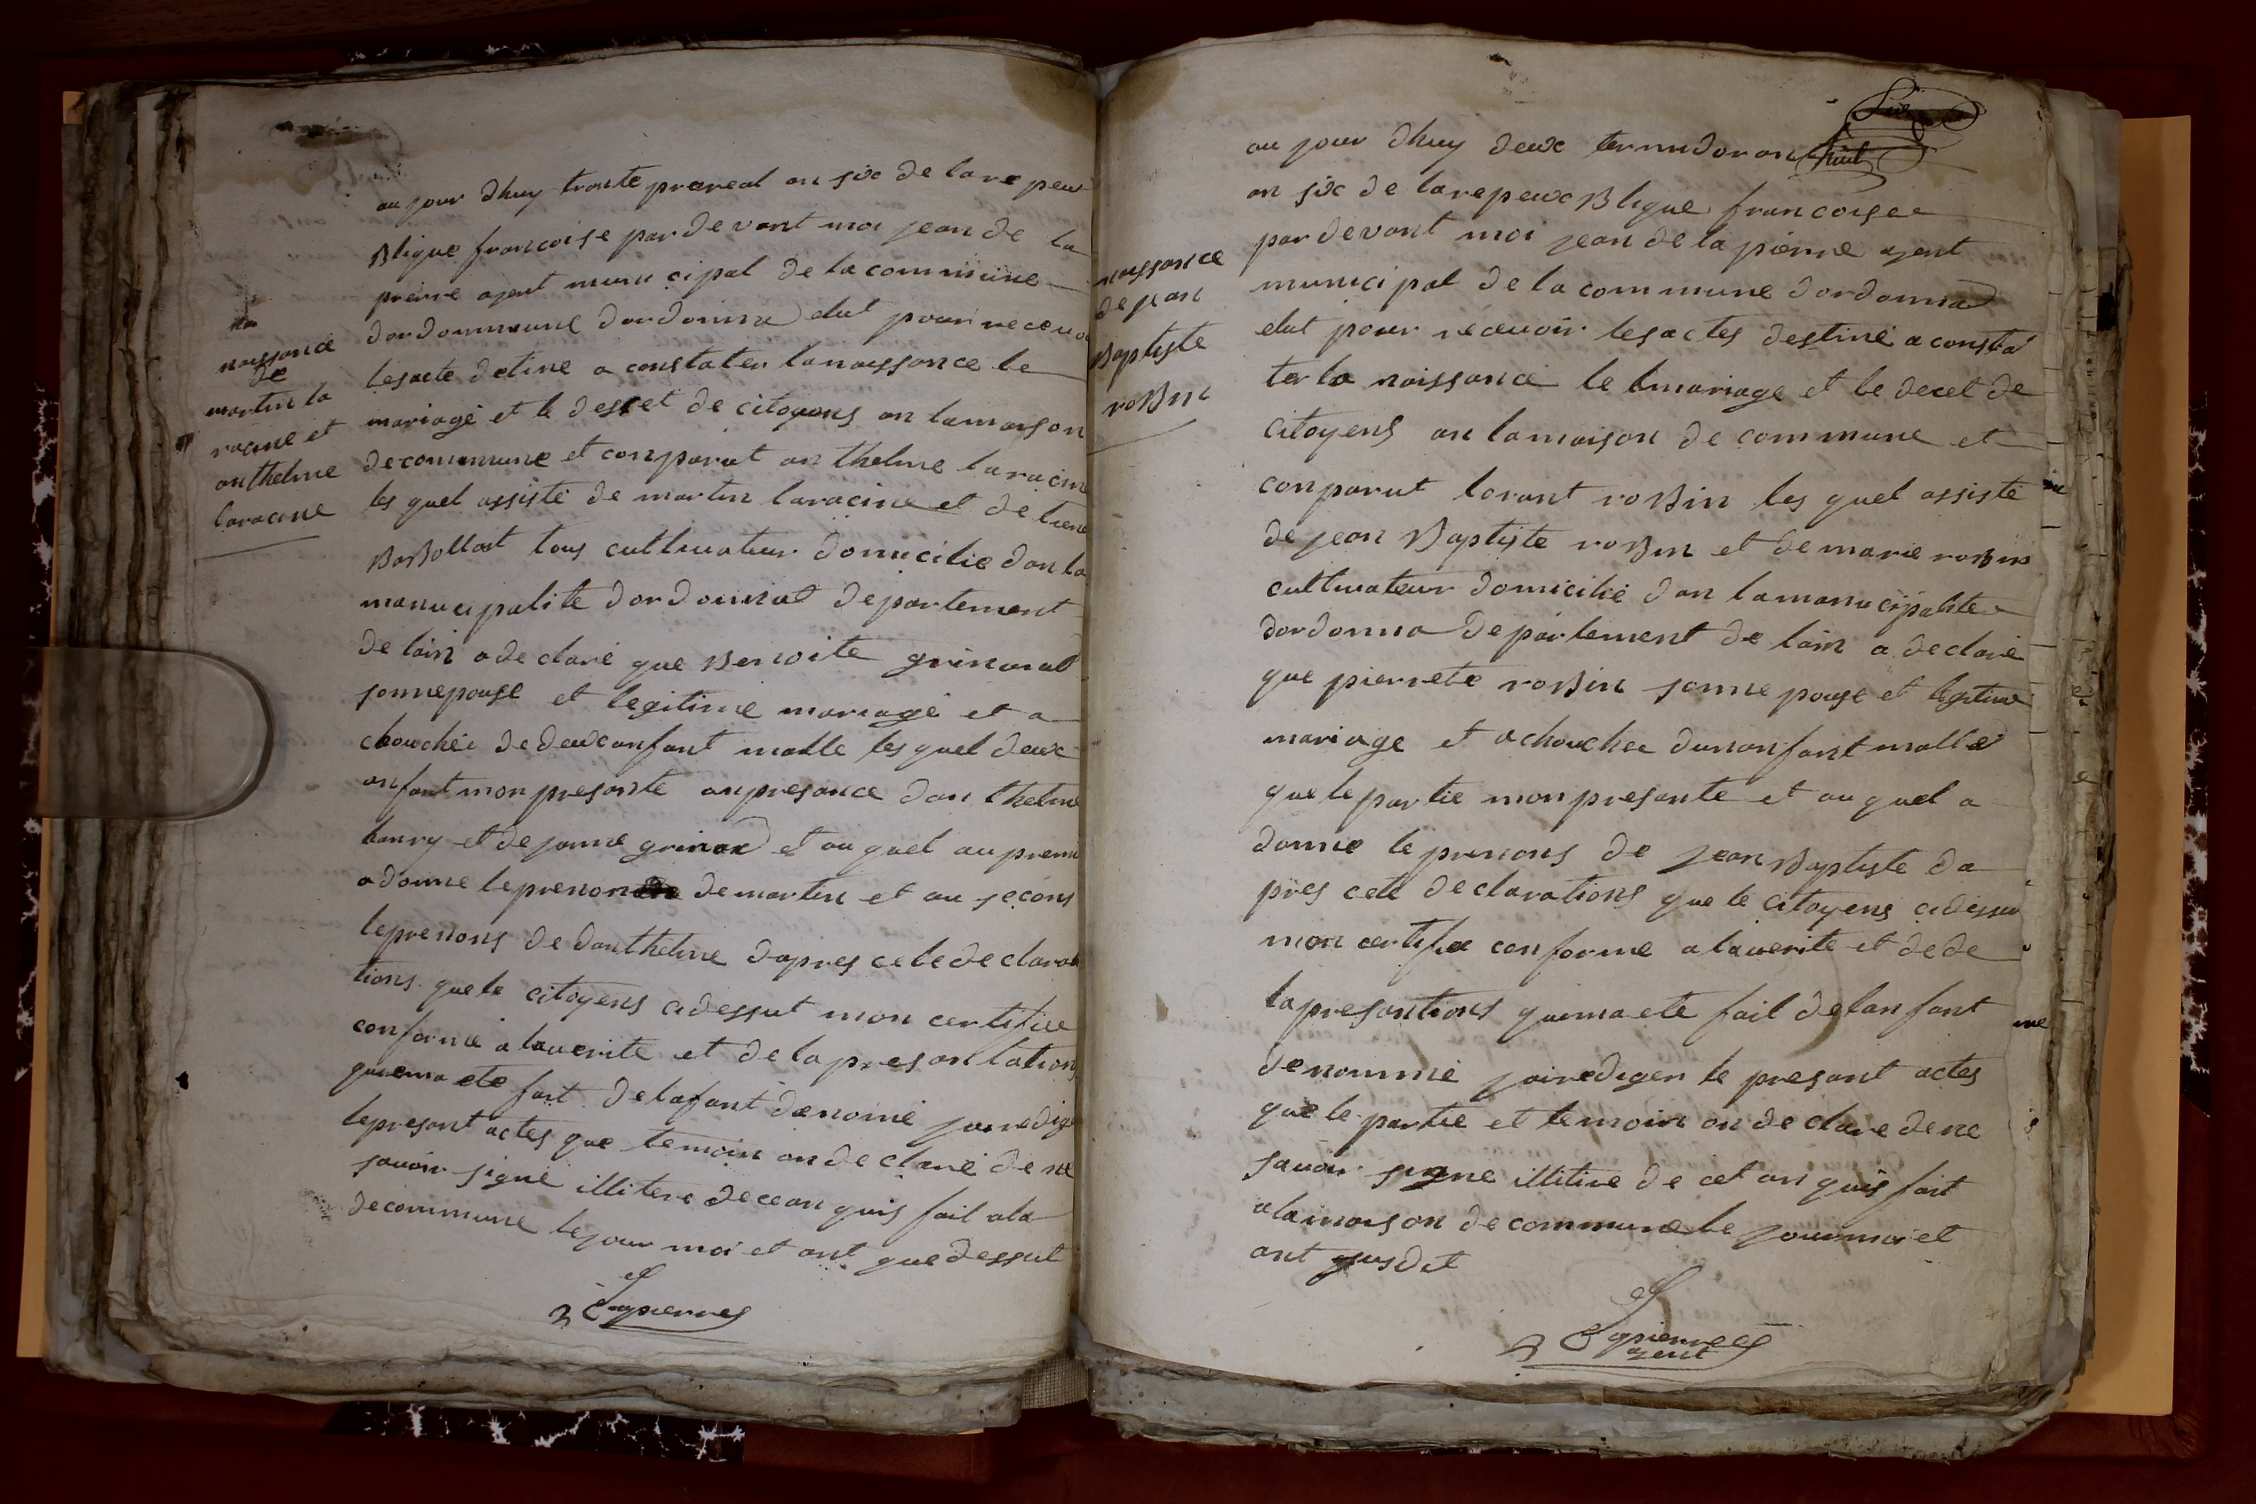 naissance
de
martin la
racine et
anthelme
laracine
au jour dhuy trante prereal an six de lare peu
Blique francoise par de vant moi jean de la
pierre ajant municipal de la commune
dordommeune dordonna elut pour recevoi
lesacte detine a constater lanaissance le
mariage et le descet de citoyens an lamaison
decommune et conparut an thelme laracine
les quel assiste de martin laracine et detiene
BaBollat tous cultivateur domicilie dan la
manucipalite dordonnat departement
de lain a de claré que Benoite grinanat
sonnepouse et legitime mariage et a
chouchée de deuxanfant malle les quel deux
anfant mon presante anpresance dan thelme
banry et de janne grinan et au quel au premi
a donne leprenon de martin et au second
leprenons de danthelme dapres cete de clara
tions que le citoyens cidessut mon certifice
conforme a laverite et de la presantations
quema ete fait de lafant denomé jairedige
lepresant actes que temoin on de claré de ne
savoir signé illitere de cean quis fait ala
decommune lejour moi et ant que dessut
Lapierre
naissance
de jean
Baptiste
roBin
au jour dhuy deux termidor an
an six de larepeuxBlique francoise
par devant moi jean de la pierre ajant
municipal de la commune dordonna
elut pour recevoir lesactes destiné a consta
ter la naissance le mariage et le decet de
citoyens an lamaison de commune et
conparut lorant roBin les quel assiste
de jean Baptiste roBin et de marie roBin
cultivateur domicilié dan lamanucipalite
dordonna departement de lain a declaré
que pierrete roBin sonne pouse et legitime
mariage et achouchee dunanfant malle
que le partie mon presante et au quel a
donne le prenons de jean Baptiste da
pres cete declarations que le citoyens cidessu
mon certifie conforme a laverite et de de
lapresantions quema ete fait delanfant
denommé jairediger le presant actes
que le partie et temoin on de clare de ne
savoir signe illitire de cet an quis fait
alamaison de commune le jourmoi et
ant qusdit
Lapierre
ajant